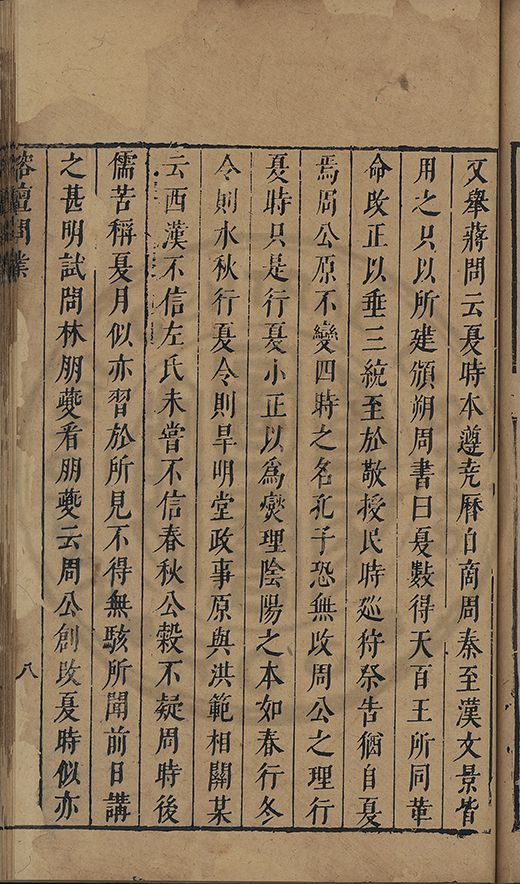 又舉蔣問云夏時本遵堯曆自商周秦至漢文景皆
用之只以所建頒朔周書曰夏數得天百王所同革
命改正以垂三統至於敬授民時廵狩祭告猶自夏
焉周公原不變四時之名孔子恐無改周公之理行
夏時只是行夏小正以爲燮理陰陽之本如春行冬
令則水秋行夏令則旱明堂政事原與洪範相關某
云西漢不信左氏未嘗不信春秋公穀不疑周時後
儒苦稱夏月似亦習於所見不得無駭所聞前日講
之甚明試問林朋夔看朋夔云周公創改夏時似亦
榕壇問業
八